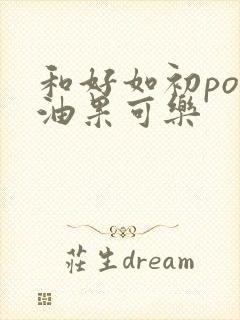 和好如初po
油果可樂
莊生dream